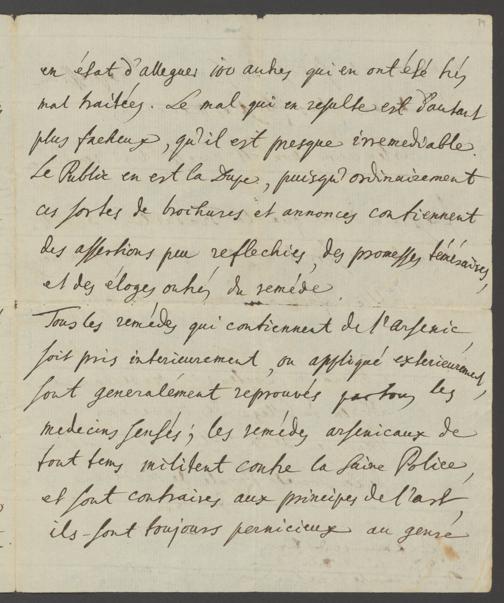 74
en état d'alleguer 100 autres qui en ont été trés
mal traitées. Le mal qui en resulte est d'autant
plus facheux, qu'il est presque irremediable.
Le Public en est la Dupe, puisqu'ordinairement
ces sortes de brochures et annonces contiennent
des assertions peu reflechies, des promesses téméraires,
et des éloges outrés du reméde.
Tous les remédes qui contiennent de l'arsenic,
soit pris interieurement, ou appliqué exterieurement,
sont generalément reprouvés par tous les
medecins sensés; les remédes arsenicaux de
tout tems militent contre la saine Police,
et sont contraires aux principes de l'art,
ils sont toujours pernicieux au genre